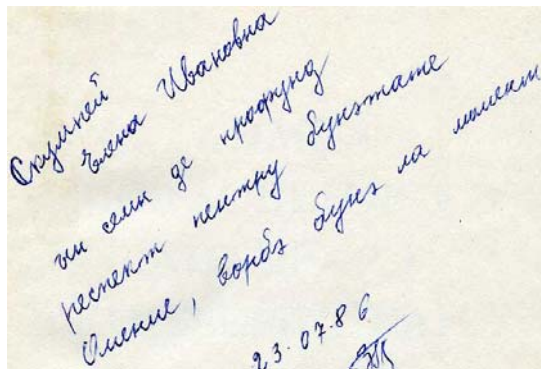 Скумпей
Елена Ивановна
ын семн де профунд
респект пентру бунэтате
Омение, ворбэ бунэ ла момент
23.07.86